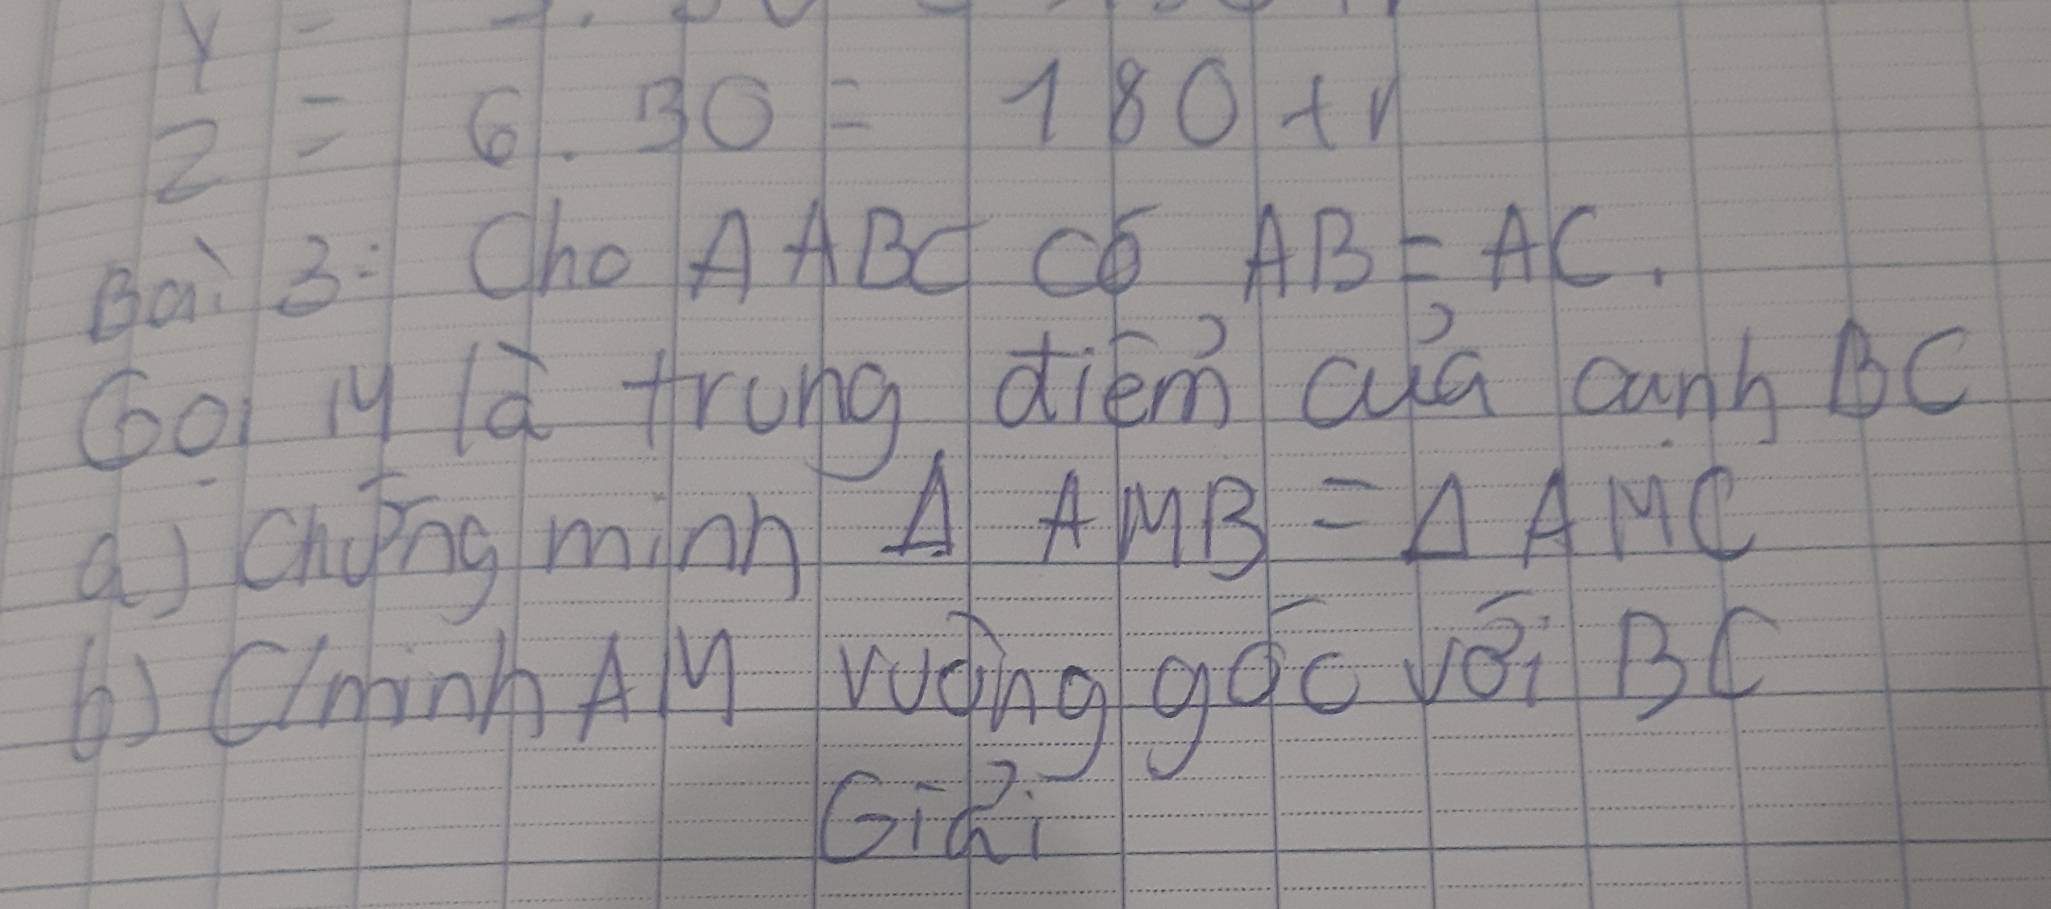 Y =
Z = 6.30 = 180 tr
Bài 3: Cho Δ ABC có AB = AC.
Gọi M là trung điểm của cạnh BC
a) Chứng minh Δ AMB = Δ AMC
b) C/minh AM vuông góc với BC
Giải